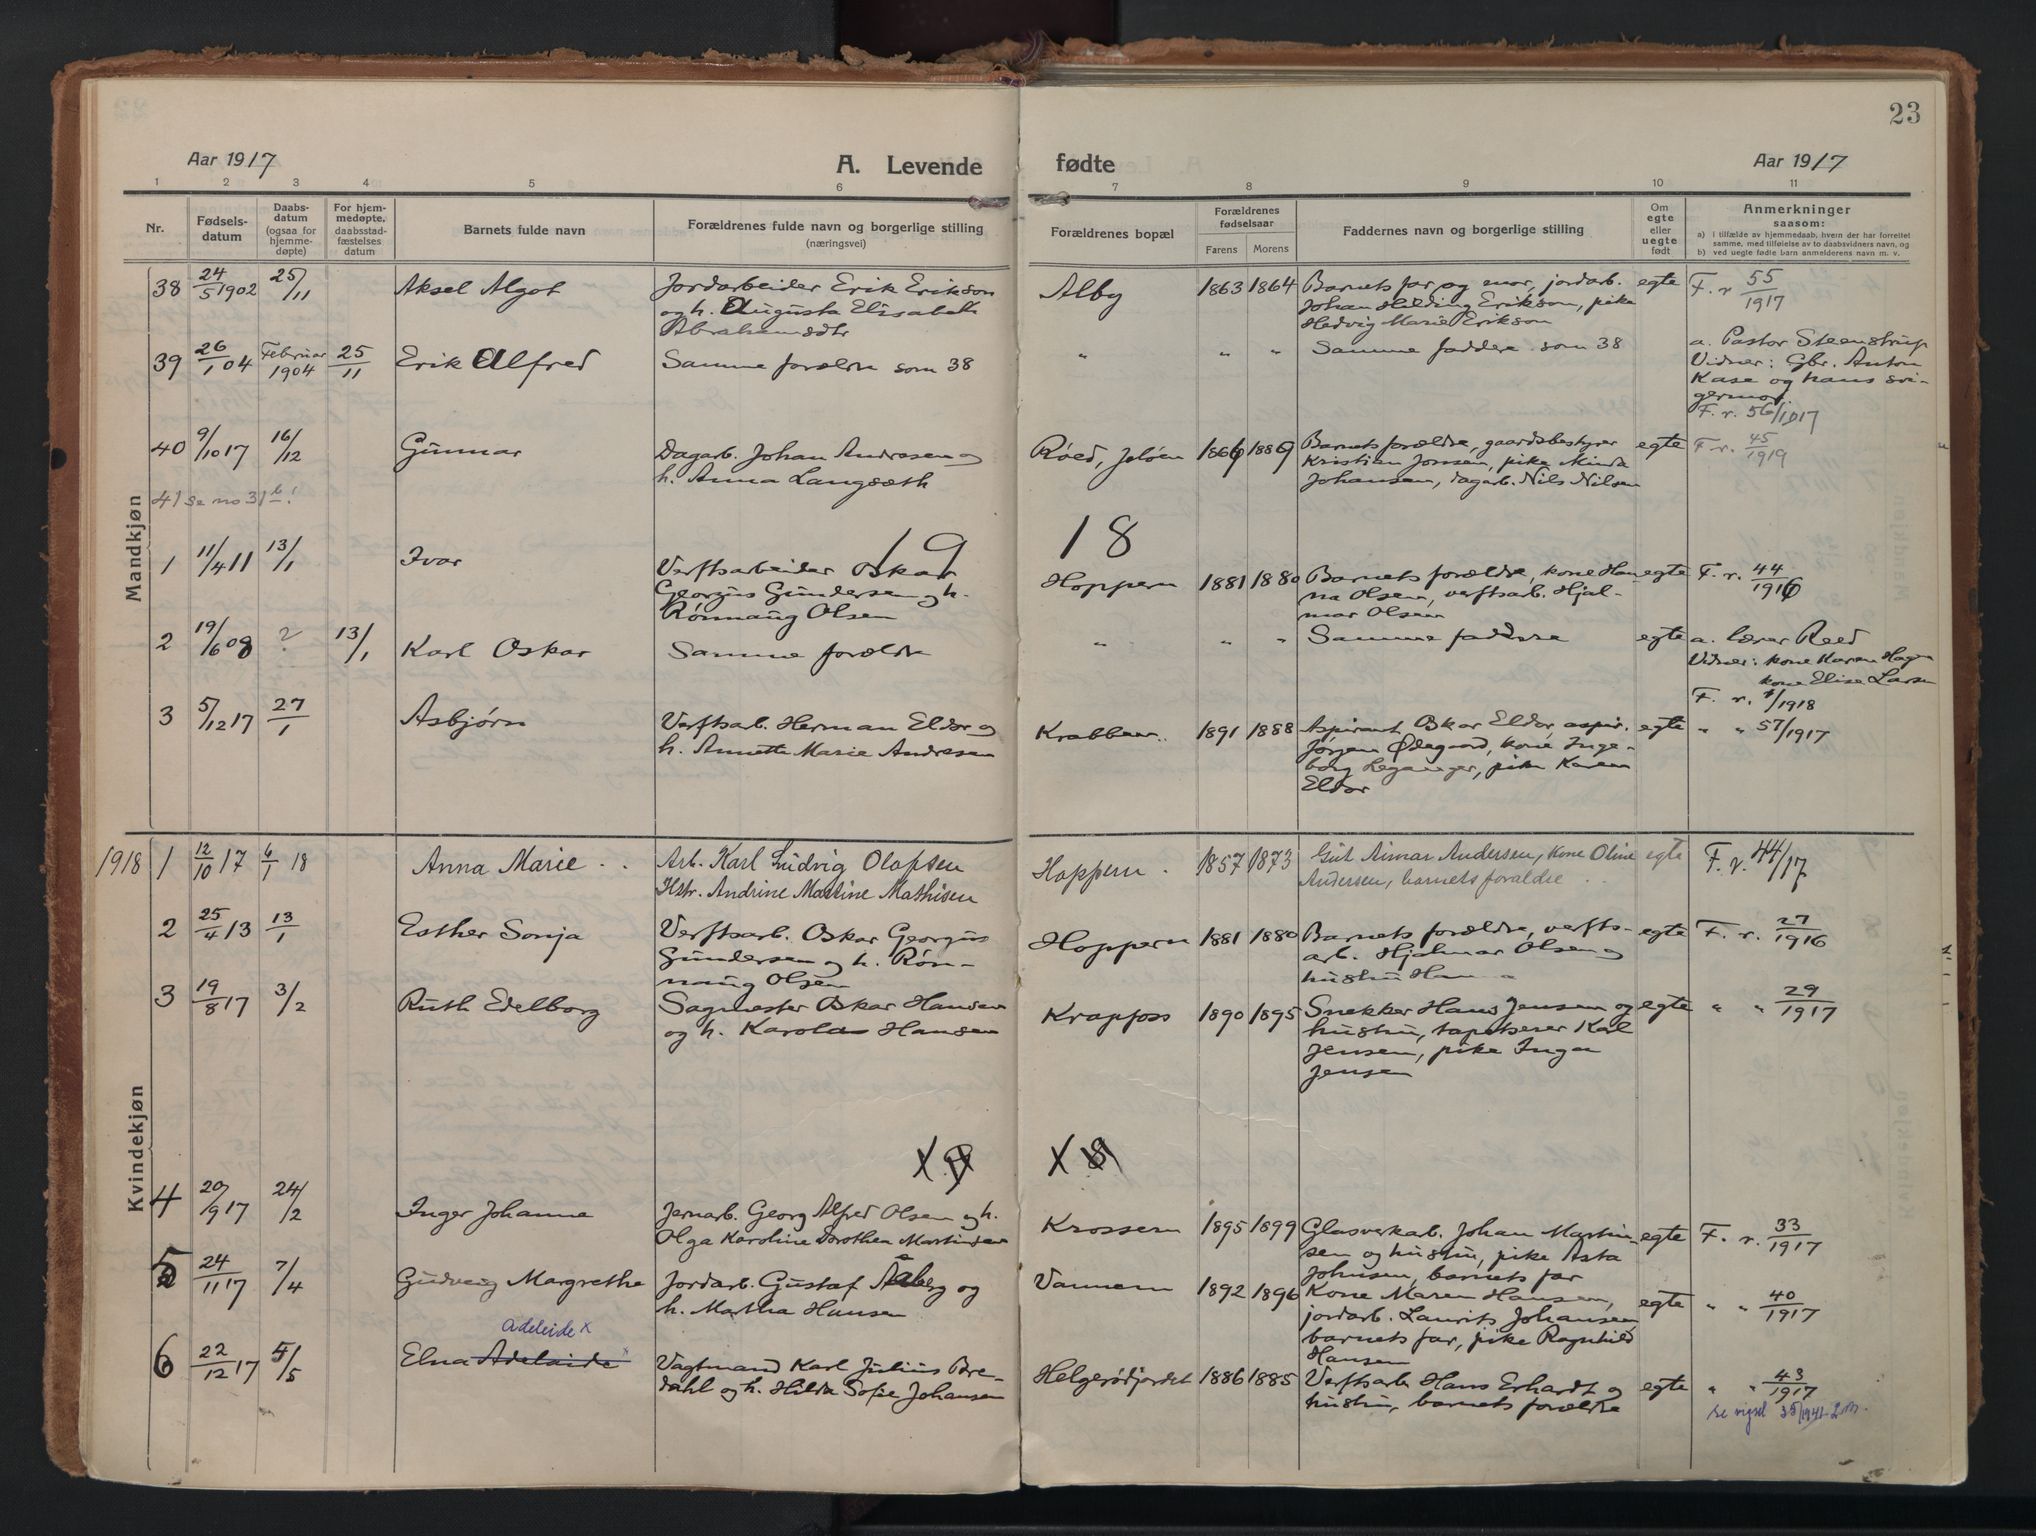 23
Aar 1917
A. Levende
fødte
Aar 1917
1 2 3 4 5 6 7 8 9 10 11
Nr.
Fødsels-
datum
Daabs-
datum
(ogsaa for
hjemme-
døpte)
For hjem-
medøpte,
daabsstad-
fæstelses
datum
Barnets fulde navn
Forældrenes fulde navn og borgerlige stilling
(næringsvei)
Forældrenes bopæl
Forældrenes
fødselsaar
Farens Morens
Faddernes navn og borgerlige stilling
Om
egte
eller
uegte
født
Anmerkninger
saasom:
a) I tilfælde av hjemmedaab, hvem der har forrettet
samme, med tilføielse av to daabsvidners navn, og
b) ved uegte født barn anmelderens navn m. v.
Mandkjøn
38 24/5 1902 25/11 Aksel Algot
Jordarbeider Erik Erikson
og h. Augusta Elisabeth
Abrahamsdtr
Alby 1863 1864
Barnets far og mor, jordarb.
Johan Hilding Erikson, pike
Hedvig Marie Erikson
egte F. r 55/1917
39 26/1 04 Februar 1904 25/11 Erik Alfred
Samme forældre som 38
" " "
Samme faddere som 38
a. Pastor Steenstrup
Vidner: Gbr. Anton
Kase og hans svi-
germor
F. r. 56/1917
40 9/10 17 16/12 Gunnar
Dagarb. Johan Andresen og
h. Anna Langsæth
Røed, Jeløen 1866 1889
Barnets forældre, gaardsbestyrer
Kristian Jonsen, pike Minda
Johansen, dagarb. Nils Nilsen
egte F. r. 45/1919
41 se no 31 b!
19 18
1 11/4 11 13/1 Ivar
Verftsarbeider Oskar
Georgius Gundersen og h.
Rønnaug Olsen
Hoppern 1881 1880
Barnets forældre, kone Han
na Olsen, verftsarb. Hjal-
mar Olsen
egte F. r. 44/1916
2 19/6 08 ? 13/1 Karl Oskar
Samme forældre
" " "
Samme faddere
egte a. lærer Reed
Vidner: kone Karen Hagen
kone Elise Larsen
F. r. 1/1918
3 5/12 17 27/1 Asbjørn
Verftsarb. Herman Eldor og
h. Annette Marie Andresen
Krabben. 1891 1888
Aspirant Oskar Eldor, aspir.
Jørgen Ødegaard, kone Inge-
borg Leganger, pike Karen
Eldor
egte " " 57/1917
Kvindekjøn
1918 1 12/10 17 6/1 18 Anna Marie
Arb. Karl Ludvig Olafsen
Hstr. Andrine Martine Mathisen
Hoppern 1857 1873
Gut Aimar Andersen, kone Oline
Andersen, barnets foraldre
egte F. r. 44/17
2 25/4 13 13/1 Esther Sonja
Verftsarb. Oskar Georgius
Gundersen og h. Røn-
naug Olsen
Hoppern 1881 1880
Barnets forældre, verfts-
arb. Hjalmar Olsen og
hustru Hanna
egte F. r. 27/1916
3 19/8 17 3/2 Ruth Edelborg
Sagmester Oskar Hansen
og h. Karola Hansen
Krapfoss 1890 1895
Snekker Hans Jensen og
hustru, tapetserer Karl
Jensen, pike Inga
Jensen
egte " " 29/1917
4 20/9 17 24/2 Inger Johanne
Jernarb. Georg Alfred Olsen og h.
Olga Karoline Dorothea Martinsen
Krossern 1895 1899
Glasverkarb. Johan Martin-
sen og hustru, pike Asta
Johnsen, barnets far
egte F. r. 33/1917
5 24/11 17 7/4 Gudveig Margrethe
Jordarb. Gustaf Aaberg og
h. Martha Hansen
Vannem 1892 1896
Kone Maren Hansen,
jordarb. Laurits Johansen
barnets far, pike Ragnhild
Hansen
egte " " 40/1917
Adeleide x
6 22/12 17 5/5 Elna Adelaide x
Vagtmand Karl Julius Bre-
dahl og h. Hilda Sofie Johansen
Helgerødjordet 1886 1885
Verftsarb Hans Erhardt og
hustru, barnets forældre
egte " " 43/1917
se vigsel 35/1941